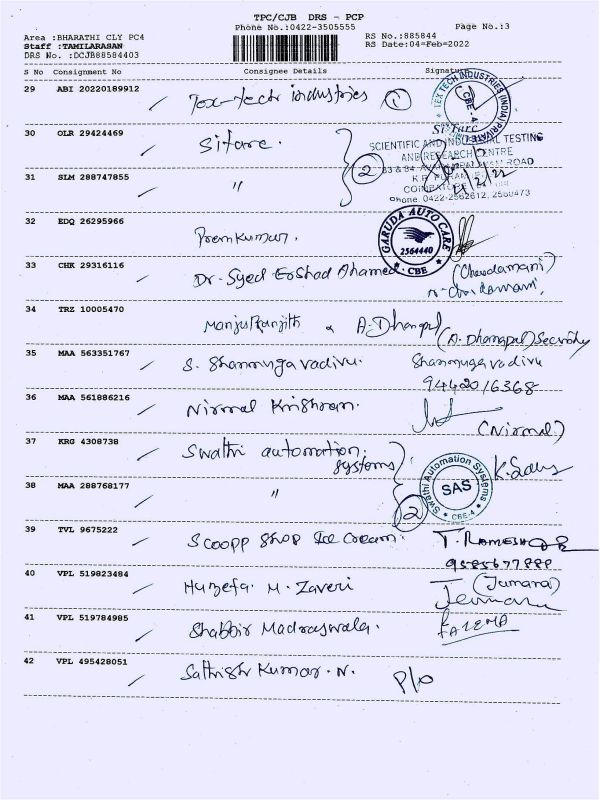 TPC/CJB DRS - PCP
Phone No.:0422-3505555
Page No.:3
Area :BHARATHI CLY PC4
Staff :TAMILARASAN
DRS No. :DCJB88584403
RS No.:885844
RS Date:04=Feb=2022
S No Consignment No Consignee Details Signature
29 ABI 20220189912 Tex-tech industries 1
TEX TECH INDUSTRIES (INDIA) PRIVATE
CBE-4
30 OLR 29424469 Sitarc. 2
SiTarc
SCIENTIFIC AND INDUSTRIAL TESTING
AND RESEARCH CENTRE
ROAD
31 SLM 288747855 "
COIMBATORE
Phone: 0422-2562612, 2560473
32 EDQ 26295966 Premkumar.
GARUDA AUTO CARE
2564440
CBE
33 CHK 29316116 Dr. Syed Ershad Ahamed (Choodamani)
34 TRZ 10005470 Manju Ranjith & A. Dhanpal (A. Dhanapal) Security
35 MAA 563351767 S. Shanmugavadivu. Shanmugavadivu
9442016368
36 MAA 561886216 Nirmal Krishnan.
(Nirmal)
37 KRG 4308738 Swathi automation
systems
Swathi Automation Systems
SAS
CBE-4
38 MAA 288768177 " 2
39 TVL 9675222 Scoopp Shop Ice Cream. T. RAMESH
9585677888
40 VPL 519823484 Huzefa. M. Zaveri (Jumana)
41 VPL 519784985 Shabbir Madraswala. FATEMA
42 VPL 495428051 Sathish Kumar. N. P/O